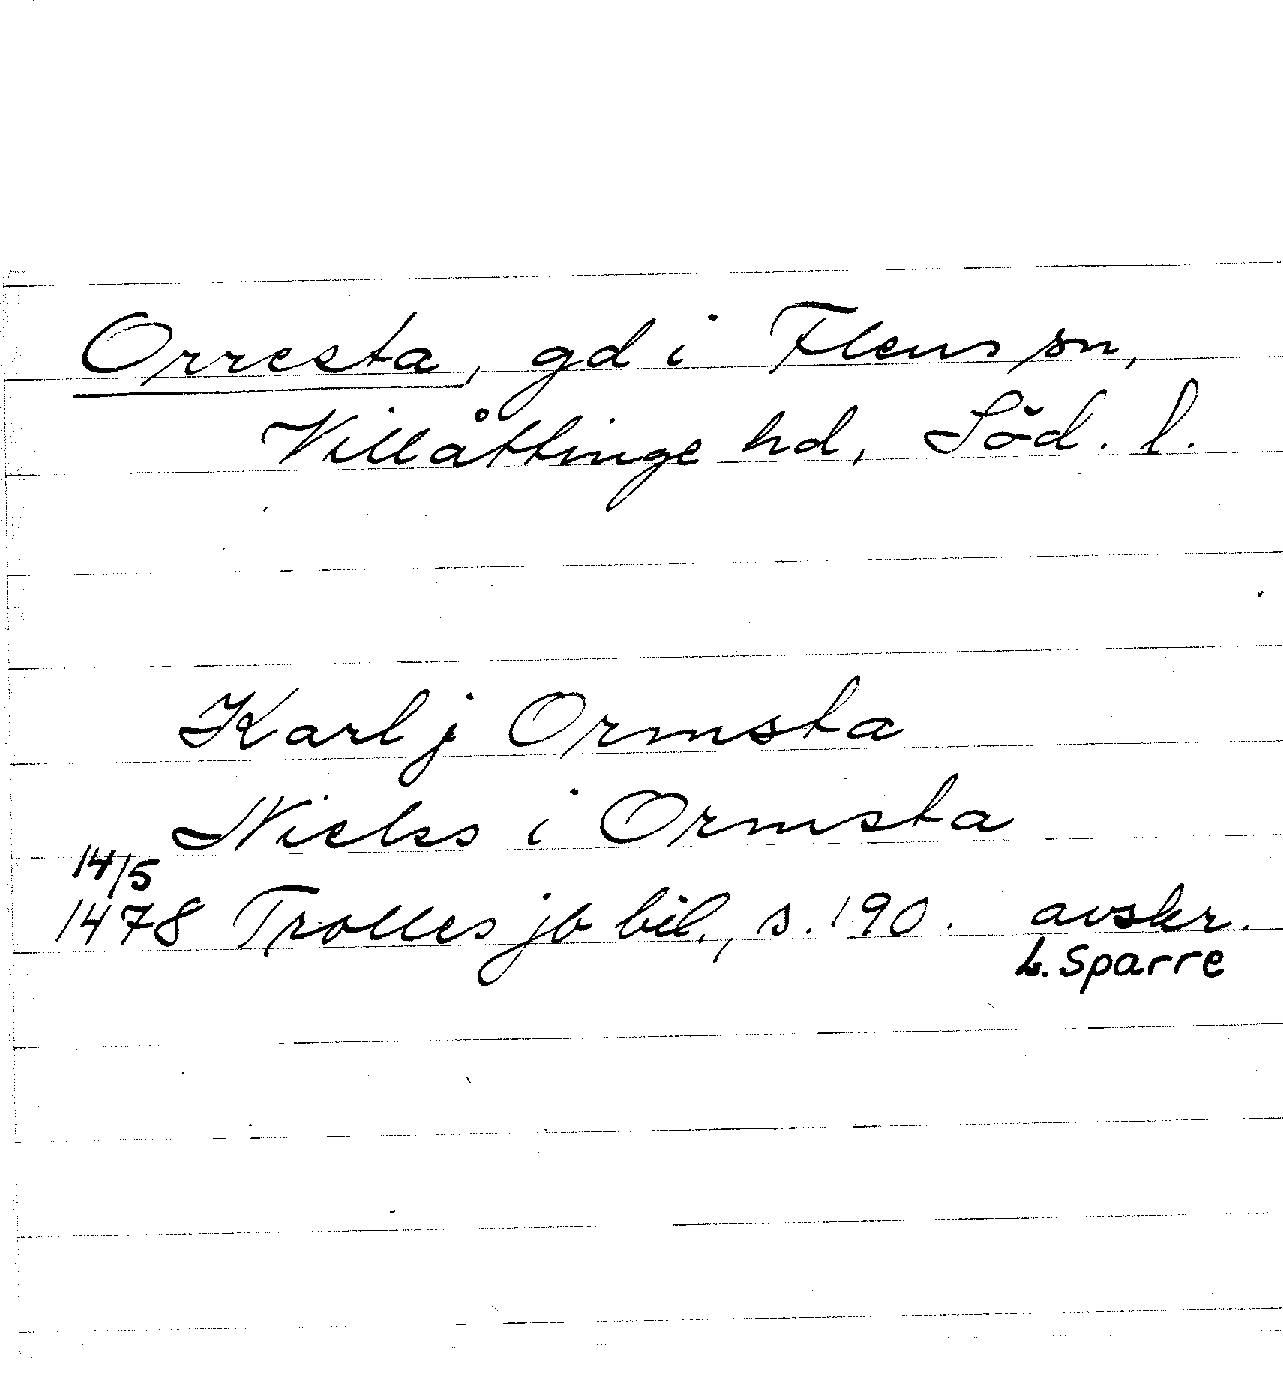 Orresta, gd i Flens sn,
Villåttinge hd, Söd. l.
Karl j Ormsta
Niels i Ormsta
14/5
1478 Trolles jb bil., s. 190. avskr.
L. Sparre